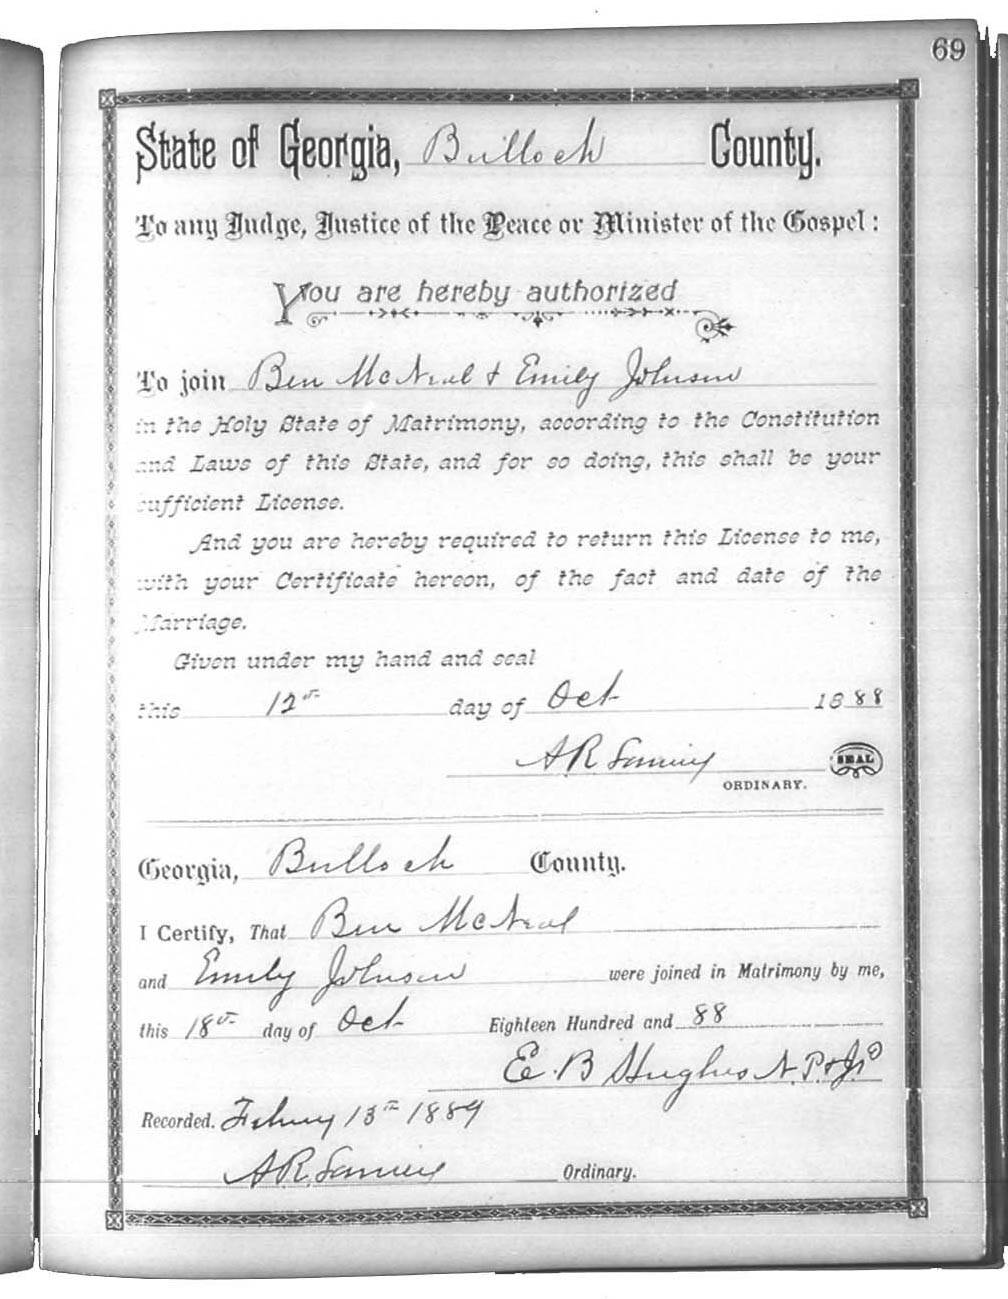 69
State of Georgia, Bulloch County.
To any Judge, Justice of the Peace or Minister of the Gospel:
You are hereby authorized
To join Ben McNeal & Emily Johnson
in the Holy State of Matrimony, according to the Constitution
and Laws of this State, and for so doing, this shall be your
sufficient License.
And you are hereby required to return this License to me,
with your Certificate hereon, of the fact and date of the
Marriage.
Given under my hand and seal
this 12th day of Oct 1888
A.R. SEAL
ORDINARY.
Georgia, Bulloch County.
I Certify, That Ben McNeal
and Emily Johnson were joined in Matrimony by me,
this 18th day of Oct Eighteen Hundred and 88
E. B Hughes N.P. & J.P.
Recorded. 13th 1889
A.R. Ordinary.